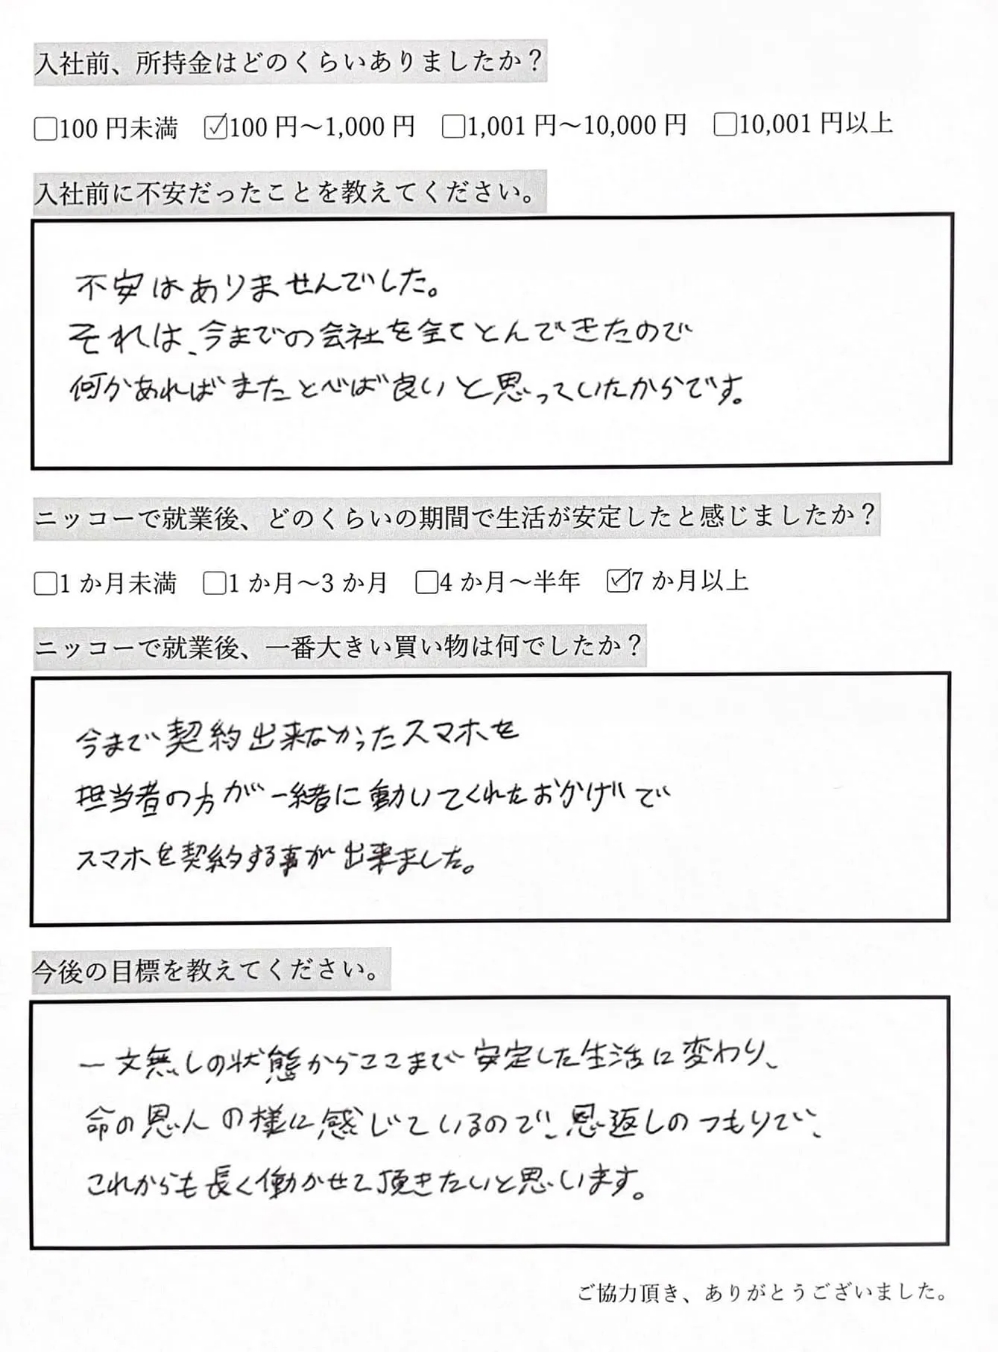 入社前、所持金はどのくらいありましたか？
☐100 円未満 ☑100 円～1,000 円 ☐1,001 円～10,000 円 ☐10,001 円以上
入社前に不安だったことを教えてください。
不安はありませんでした。
それは、今までの会社を全てとんできたので
何かあればまたとべば良いと思っていたからです。
ニッコーで就業後、どのくらいの期間で生活が安定したと感じましたか？
☐1 か月未満 ☐1 か月～3 か月 ☐4 か月～半年 ☑7 か月以上
ニッコーで就業後、一番大きい買い物は何でしたか？
今まで契約出来なかったスマホを
担当者の方が一緒に動いてくれたおかげで
スマホを契約する事が出来ました。
今後の目標を教えてください。
一文無しの状態からここまで安定した生活に変わり、
命の恩人の様に感じているので、恩返しのつもりで、
これからも長く働かせて頂きたいと思います。
ご協力頂き、ありがとうございました。